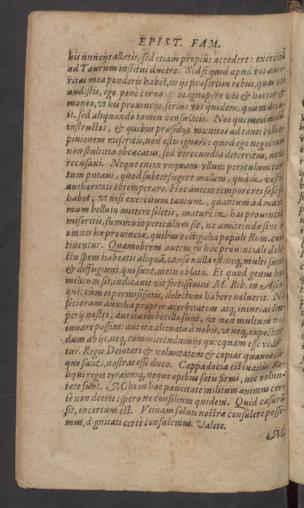 EPIST. FAM.
his nuncijs allatis, sed etiam propius accedere: exercitū
ad Taurum institui ducere. Sed si quid apud vos aucto-
ritas mea ponderis habet, in ijs præsertim rebus, quas vos
audistis, ego penè cerno & magnopere vos & hortor &
moneo, vt his prouincijs, seriùs vos quidem, quàm decu-
it, sed aliquando tamen consulatis. Nos quemadmodū
instructos, & quibus præsidijs munitos ad tanti belli o-
pinionem miseritis, non estis ignari: quod ego negocium
non stultitia obcæcatus, sed verecundia deterritus, non
recusaui. Neque enim vnquam vllum periculum tan-
tum putaui, quod subterfugere mallem, quàm vestræ
authoritati obtemperare. Hoc autem tempore res sese sic
habet, vt nisi exercitum tantum, quantum ad maxi-
mum bellum mittere soletis, maturè in has prouincias
miseritis, summum periculum sit, ne amittendæ sint
omnes hæ prouinciæ, quibus vectigalia populi Rom. con-
tinentur. Quamobrem autem in hoc prouinciali dele-
ctu spem habeatis aliquā, causa nulla est: neq; multi sunt,
& diffugiunt, qui sunt, metu oblato. Et quod genus hoc
militum sit, iudicauit vir fortissimus M. Bib. in Asia,
qui, cùm ei permisissetis, delectum habere noluerit. Nā
sociorum auxilia propter acerbitatem atq; iniurias im-
perij nostri, aut ita imbecilla sunt, vt non multum nos
iuuare possint: aut ita alienata à nobis, vt neq; expectan-
dum ab ijs, neq; committendum ijs quicquam esse videa-
tur. Regis Deiotari & voluntatem & copias quantæcū-
que sunt, nostras esse duco. Cappadocia est inanis. Re-
liqui reges tyranniq; neque opibus satis firmi, nec volun-
tate sunt. Mihi in hac paucitate militum animus cer-
tè non deerit: spero ne consilium quidem. Quid casurū
sit, incertum est. Vtinam saluti nostræ consulere possi-
mus, dignitati certè consulemus. Valete.